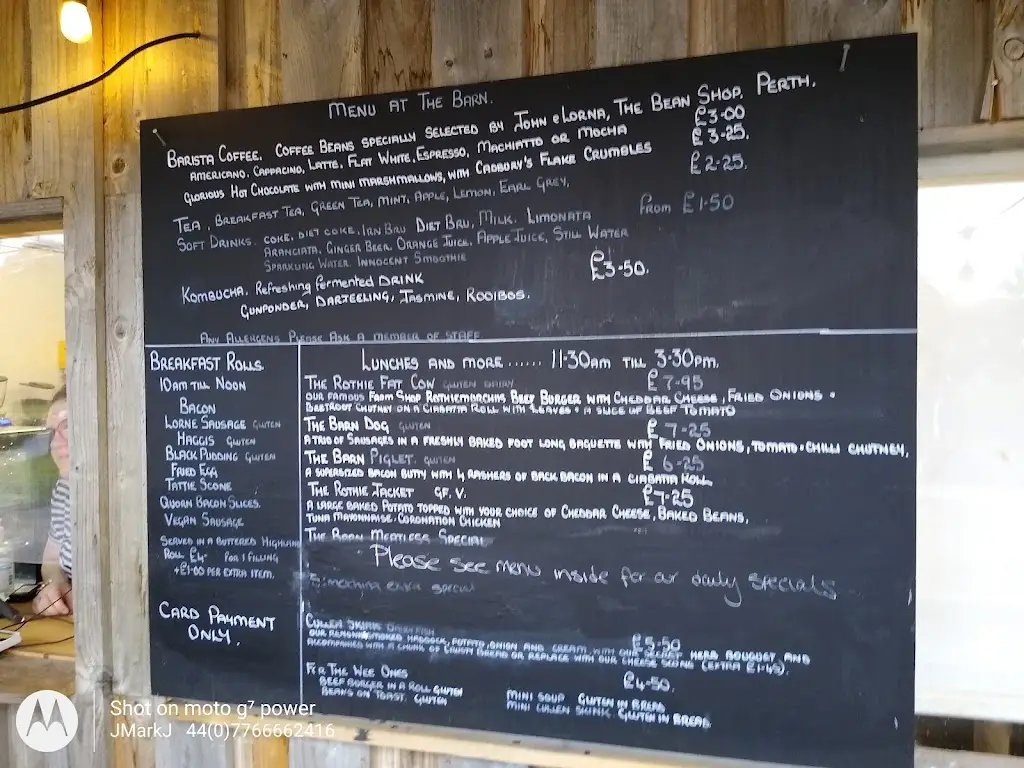 MENU AT THE BARN.
BARISTA COFFEE. COFFEE BEANS SPECIALLY SELECTED BY JOHN & LORNA, THE BEAN SHOP, PERTH.
AMERICANO, CAPPACINO, LATTE, FLAT WHITE, ESPRESSO, MACHIATTO OR MOCHA £3-00
GLORIOUS HOT CHOCOLATE WITH MINI MARSHMALLOWS, WITH CADBURY'S FLAKE CRUMBLES £3-25.
TEA, BREAKFAST TEA, GREEN TEA, MINT, APPLE, LEMON, EARL GREY, £2-25.
SOFT DRINKS. COKE, DIET COKE, IRN BRU DIET BRU, MILK. LIMONATA FROM £1-50
ARANCIATA, GINGER BEER. ORANGE JUICE, APPLE JUICE, STILL WATER
SPARKLING WATER. INNOCENT SMOOTHIE
KOMBUCHA. REFRESHING FERMENTED DRINK £3-50.
GUNPONDER, DARTEELING, JASMINE, ROOIBOS.
ANY ALLERGENS PLEASE ASK A MEMBER OF STAFF
BREAKFAST ROLLS.
10AM TILL NOON
BACON
LORNE SAUSAGE GLUTEN
HAGGIS GLUTEN
BLACK PUDDING GLUTEN
FRIED EGG
TATTIE SCONE
QUORN BACON SLICES.
VEGAN SAUSAGE
SERVED IN A BUTTERED HIGHLAND
ROLL £4- FOR 1 FILLING
+£1-00 PER EXTRA ITEM.
CARD PAYMENT
ONLY.
LUNCHES AND MORE ...... 11-30AM TILL 3-30PM.
THE ROTHIE FAT COW GLUTEN DAIRY £7-95
OUR FAMOUS FARM SHOP ROTHIEMURCHUS BEEF BURGER WITH CHEDDAR CHEESE, FRIED ONIONS +
BEETROOT CHUTNEY ON A CIABATTA ROLL WITH LEAVES + A SLICE OF BEEF TOMATO
THE BARN DOG GLUTEN £7-25
A TRIO OF SAUSAGES IN A FRESHLY BAKED FOOT LONG BAGUETTE WITH FRIED ONIONS, TOMATO + CHILLI CHUTNEY,
THE BARN PIGLET. GLUTEN £6-25
A SUPERSIZED BACON BUTTY WITH 4 RASHERS OF BACK BACON IN A CIABATTA ROLL
THE ROTHIE JACKET GF. V. £7-25
A LARGE BAKED POTATO TOPPED WITH YOUR CHOICE OF CHEDDAR CHEESE, BAKED BEANS,
TUNA MAYONNAISE, CORONATION CHICKEN
THE BARN MEATLESS SPECIAL
Please see menu inside for our daily specials
extra special
CULLEN SKINK £5-50
SMOKED HADDOCK, POTATO, ONION AND CREAM, WITH OUR SECRET HERB BOUQUET AND
ACCOMPANIED WITH A CHUNK OF CRUSTY BREAD OR REPLACE WITH OUR CHEESE SCONE (EXTRA £1-45).
FOR THE WEE ONES £4-50.
BEEF BURGER IN A ROLL GLUTEN MINI SOUP GLUTEN IN BREAD
BEANS ON TOAST. GLUTEN MINI CULLEN SKINK. GLUTEN IN BREAD.
Shot on moto g⁷ power
JMarkJ 44(0)7766662416